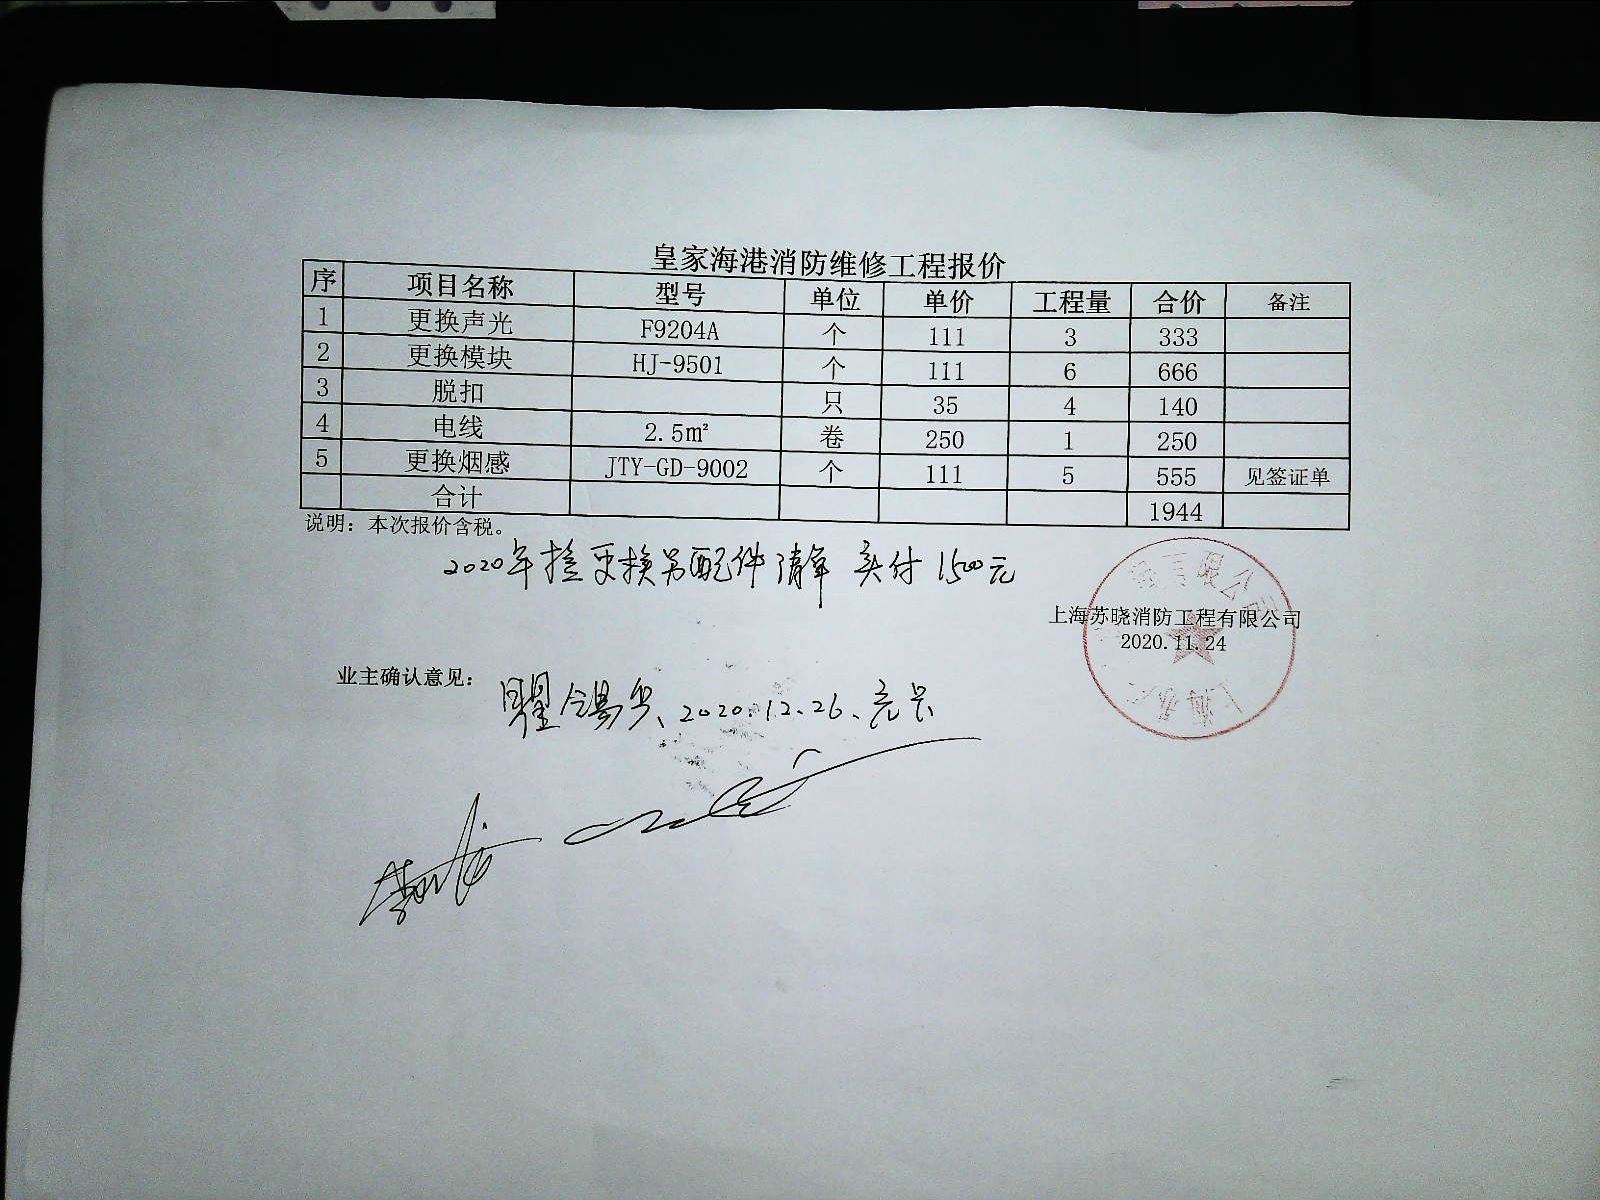 皇家海港消防维修工程报价
序 项目名称 型号 单位 单价 工程量 合价 备注
1 更换声光 F9204A 个 111 3 333
2 更换模块 HJ-9501 个 111 6 666
3 脱扣 只 35 4 140
4 电线 2.5㎡ 卷 250 1 250
5 更换烟感 JTY-GD-9002 个 111 5 555 见签证单
合计 1944
说明：本次报价含税。
2020年 更换 配件清单 实付1500元
上海苏晓消防工程有限公司
2020.11.24
业主确认意见：
2020.12.26、